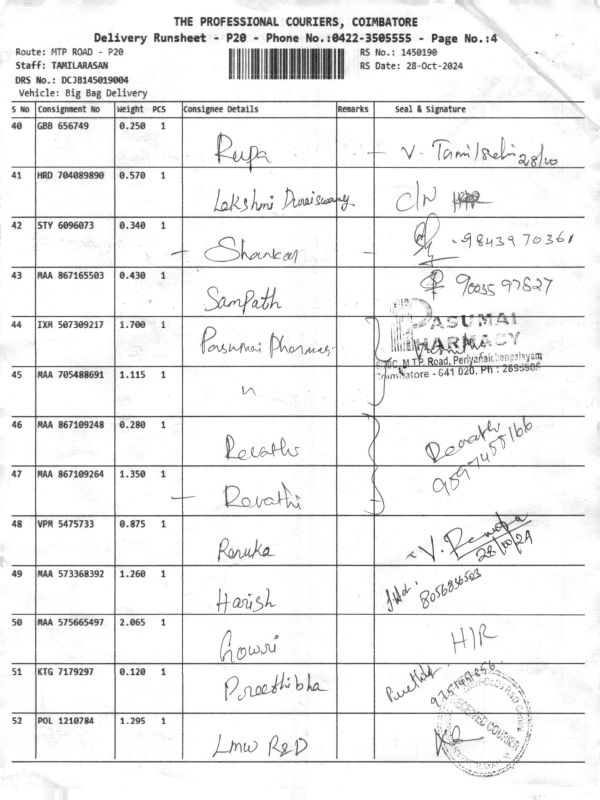 THE PROFESSIONAL COURIERS, COIMBATORE
Delivery Runsheet - P20 - Phone No.:0422-3505555 - Page No.:4
Route: MTP ROAD - P20
RS No.: 1450190
Staff: TAMILARASAN
RS Date: 28-Oct-2024
DRS No.: DCJB145019004
Vehicle: Big Bag Delivery
S No Consignment No Weight PCS Consignee Details Remarks Seal & Signature
40 GBB 656749 0.250 1 Rupa V. Tamilselvi 28/10
41 HRD 704089890 0.570 1 Lakshmi Duraiswamy C/N
42 STY 6096073 0.340 1 Shankar 9843970361
43 MAA 867165503 0.430 1 Sampath 9003597527
44 IXM 507309217 1.700 1 Pasumai Pharmacy PASUMAI PHARMACY
M.T.P. Road, Periyanaickenpalayam
Coimbatore - 641 020. Ph : 2695506
45 MAA 705488691 1.115 1 "
46 MAA 867109248 0.280 1 Revathi Revathi
9597455166
47 MAA 867109264 1.350 1 Revathi
48 VPM 5475733 0.875 1 Renuka V. Renuka
28/10/24
49 MAA 573368392 1.260 1 Harish 8056836503
50 MAA 575665497 2.065 1 Gowri H/R
51 KTG 7179297 0.120 1 Preethibha
52 POL 1210784 1.295 1 LMW R&D